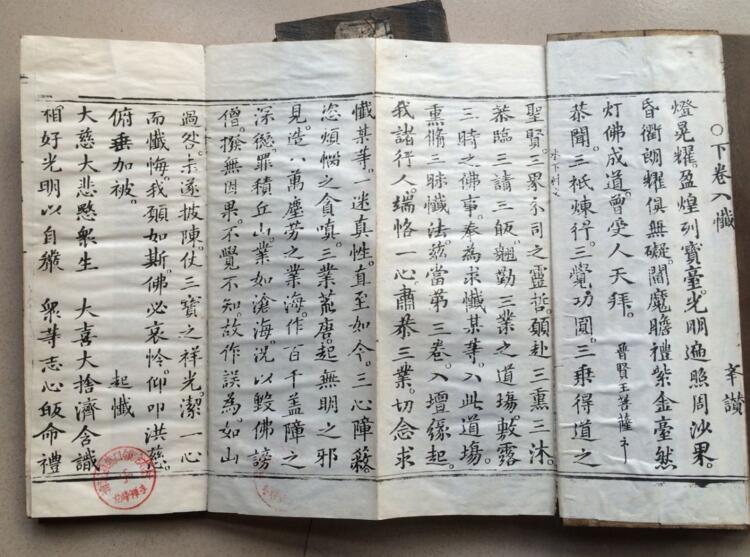 ○下卷入懺 举讃
燈晃耀。盈煌列寳臺。光明遍照周沙界。
昏衢朗耀俱無礙。閻魔瞻禮紫金臺。然
灯佛成道。曾受人天拜。普賢王菩薩
恭聞。三祇煉行。三覺功圓。三乘得道之
聖賢。三界示司之靈哲。願赴三熏三沐。
恭臨三請三皈。翹勤三業之道塲。敷露
三時之佛事。奉為求懺某等。入此道塲。
熏脩三昧懺法。兹當第三卷。入壇緣起。
我諸行人。端恪一心。肅恭三業。切念求
懺某等。一迷真性。直至如今。三心障
恣煩惱之貪嗔。三業荒唐。起無明之邪
見。造八萬塵劳之業海。作百千盖障之
深愆。罪積丘山。業如滄海。况以毀佛謗
僧。撥無因果。不覺不知。故作誤為。如山
過咎。未遂披陳。仗三寳之祥光。潔一心
而懺悔。我願如斯。佛必哀怜。仰叩洪慈。
俯垂加被。 起懺
大慈大悲愍衆生 大喜大捨濟含識
相好光明以自嚴 衆等志心皈命禮